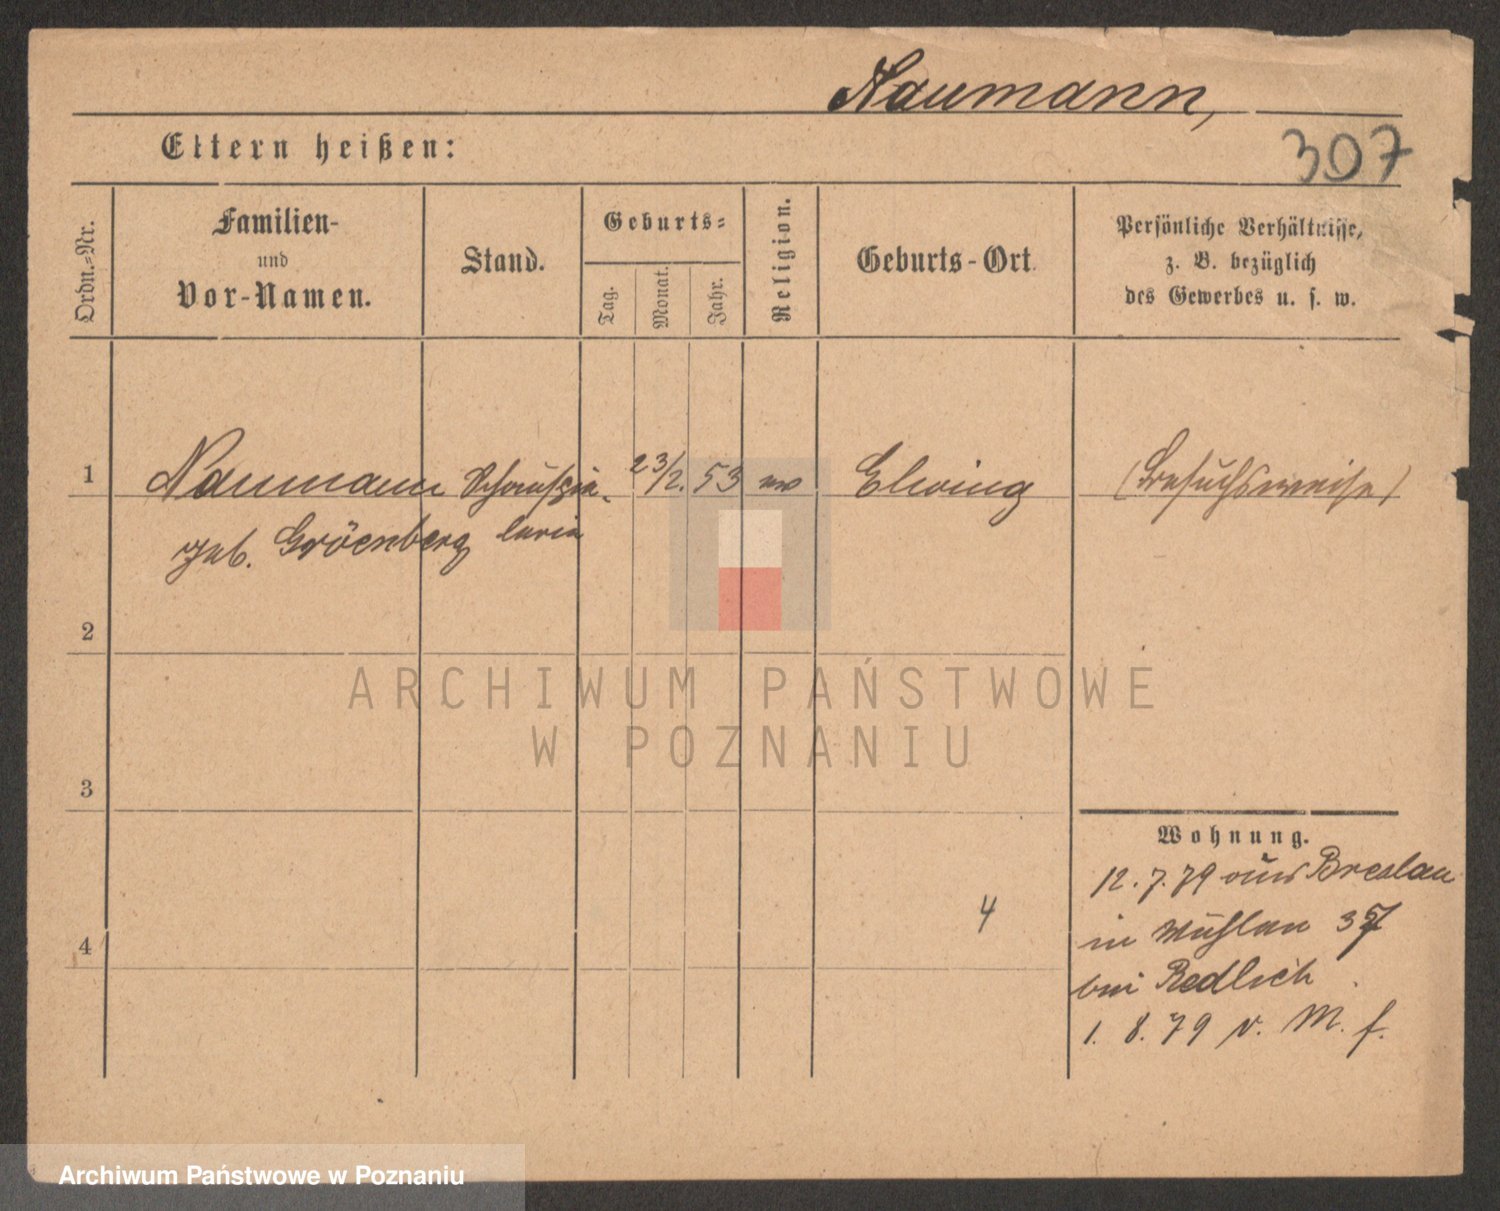 Naumann,
307
Eltern heißen:
Ordn.-Nr.
Familien-
und
Vor-Namen.
Stand.
Geburts-
Tag.
Monat.
Jahr.
Religion.
Geburts-Ort.
Persönliche Verhältnisse,
z. B. bezüglich
des Gewerbes u. s. w.
1 Naumann Schauspie- 23/2. 53 Elwing (Besuchsweise)
geb. Gröenberg lerin
2
3
4
ARCHIWUM PAŃSTWOWE
W POZNANIU
Wohnung.
12. 7. 79 aus Breslau
in Mühlen 37
bei Redlich
1. 8. 79 v. M. f.
4
Archiwum Państwowe w Poznaniu